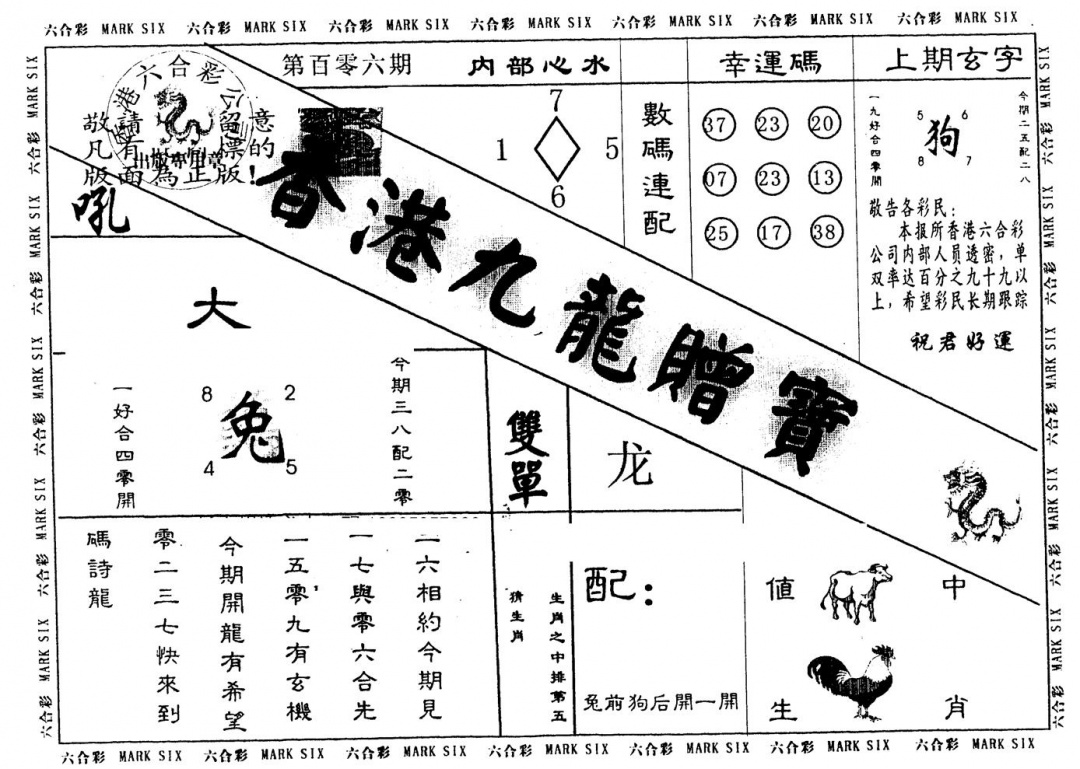 六合彩 MARK SIX 六合彩 MARK SIX 六合彩 MARK SIX 六合彩 MARK SIX 六合彩 MARK SIX 六合彩 MARK SIX 六合彩 MARK SIX
六合彩 MARK SIX 六合彩 MARK SIX 六合彩 MARK SIX 六合彩 MARK SIX 六合彩 MARK SIX
港六合彩公
敬請留意
凡有標的
版面為正版!
出版專用章
吼
第百零六期
香港九龍贈寶
内部心水
7
1
5
6
數碼連配
幸運碼
37 23 20
07 23 13
25 17 38
上期玄字
今期二五配二八
5
6
狗
8
7
一九好合四零開
敬告各彩民:
本报所香港六合彩
公司内部人员透密,单
双率达百分之九十九以
上,希望彩民长期跟踪
祝君好運
大
今期三八配二零
8
2
兔
4
5
一好合四零開
雙單
龙
一六相約今期見
一七與零六合先
一五零九有玄機
今期開龍有希望
零二三七快來到
碼詩龍
生肖之中排第五
猜生肖
配:
兔前狗后開一開
值
中
生
肖
六合彩 MARK SIX 六合彩 MARK SIX 六合彩 MARK SIX 六合彩 MARK SIX 六合彩 MARK SIX
六合彩 MARK SIX 六合彩 MARK SIX 六合彩 MARK SIX 六合彩 MARK SIX 六合彩 MARK SIX 六合彩 MARK SIX 六合彩 MARK SIX